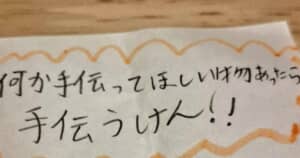 何か手伝ってほしい物あったら
手伝うけん!!